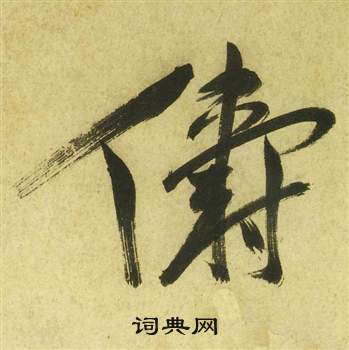 儔
词典网